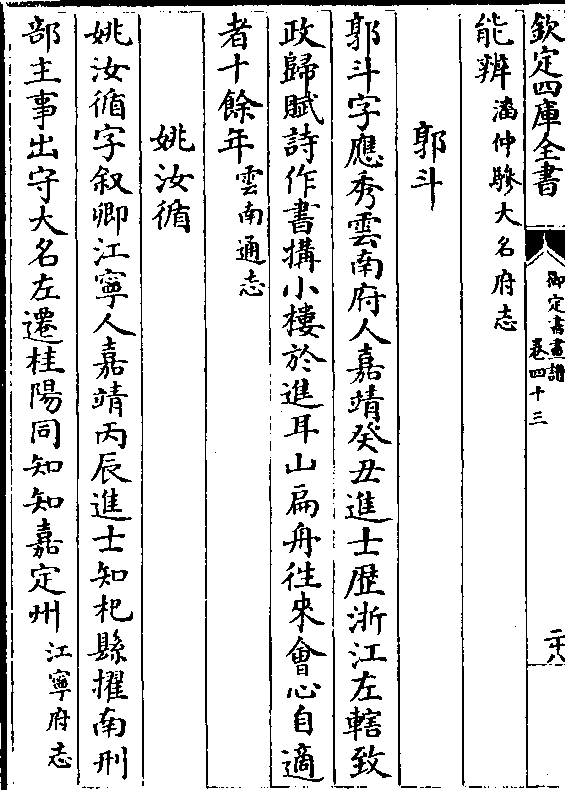 欽定四庫全書
御定書畫譜
卷四十三
二十八
能辨潘仲驂大名府志
郭斗
郭斗字應秀雲南府人嘉靖癸丑進士歴浙江左轄致
政歸賦詩作書搆小樓於進耳山扁舟徃來會心自適
者十餘年雲南通志
姚汝循
姚汝循字叙卿江寧人嘉靖丙辰進士知杞縣擢南刑
部主事出守大名左遷桂陽同知知嘉定州江寧府志